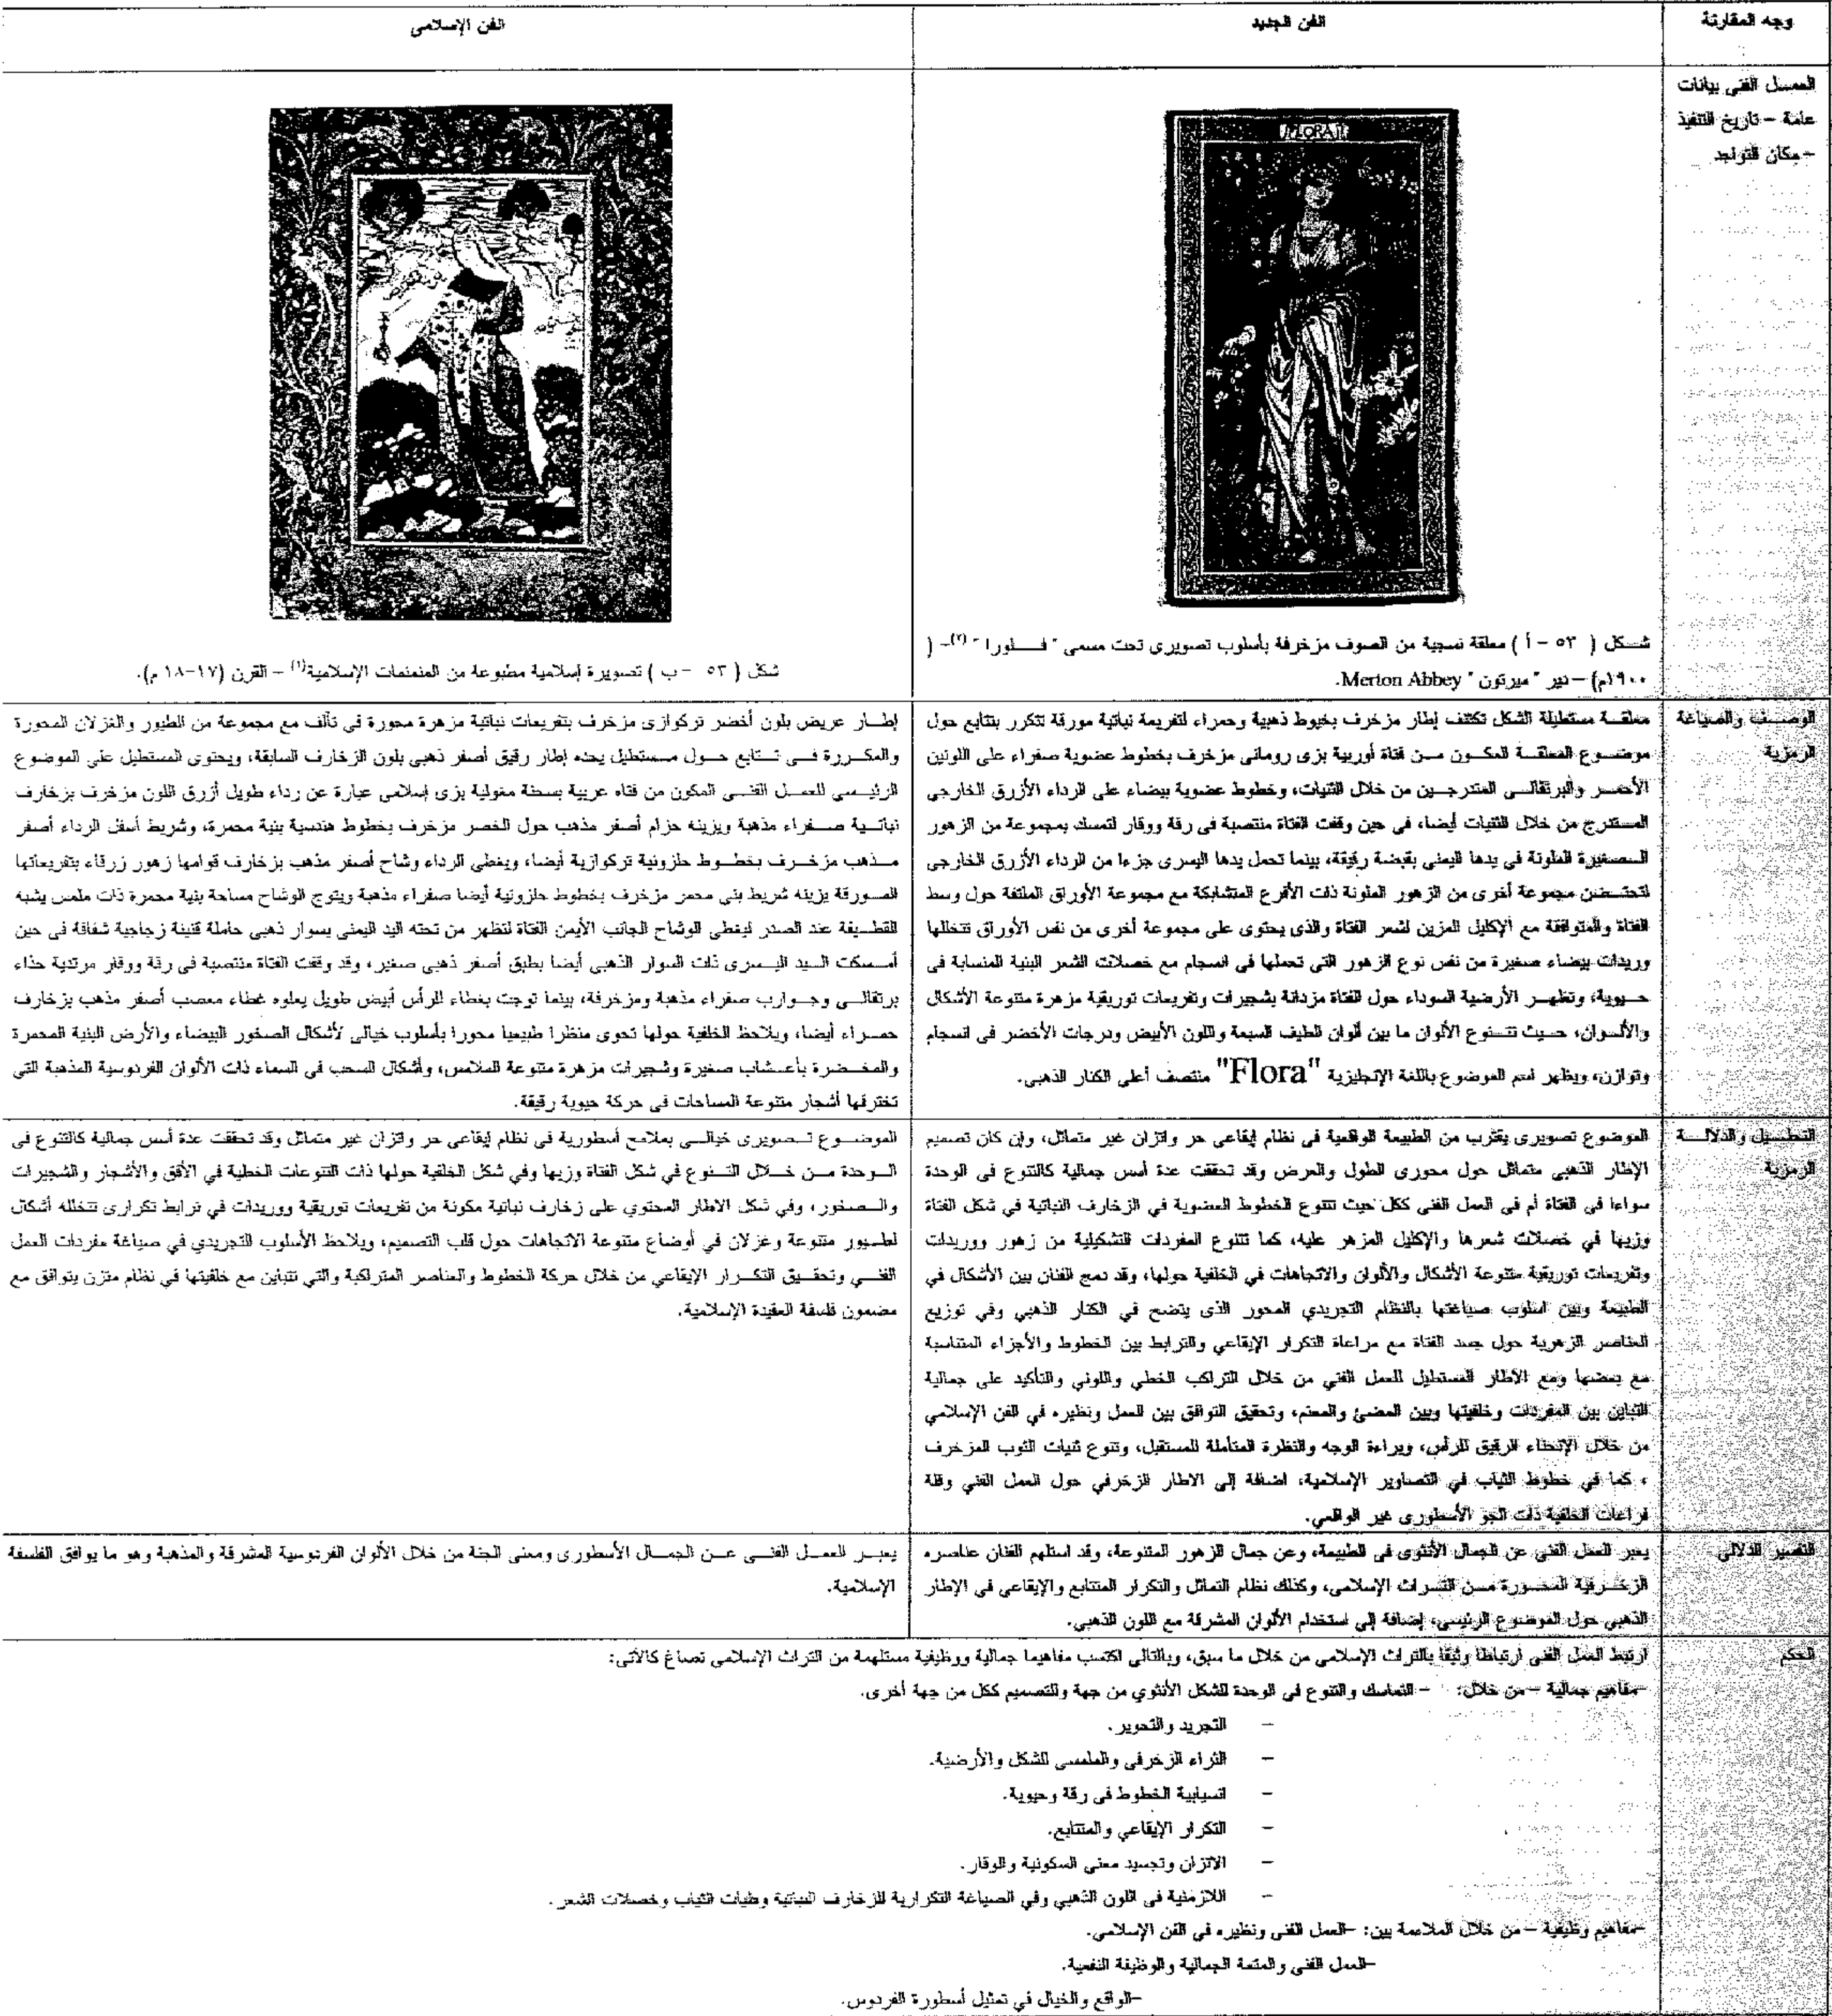 وجه المقارنة
الفن الجديد
الفن الإسلامى
العمل الفنى بيانات
عامة – تاريخ التنفيذ
–مكان التواجد
FLORA
شكل ( ٥٣ – أ ) معلقة نسجية من الصوف مزخرفة بأسلوب تصويرى تحت مسمى " فلورا " (٢)– (
١٩٠٠م) –دير " ميرتون " Merton Abbey.
شكل ( ٥٣ – ب ) تصويرة إسلامية مطبوعة من المنمنمات الإسلامية(١) – القرن (١٧-١٨ م).
الوصف والصياغة
الرمزية
معلقة مستطيلة الشكل تكتنف إطار مزخرف بخيوط ذهبية وحمراء لتفريعة نباتية مورقة تتكرر بتتابع حول
موضوع المعلقة المكون من فتاة أوربية بزى رومانى مزخرف بخطوط عضوية صفراء على اللونين
الأحمر والبرتقالى المتدرجين من خلال الثنيات، وخطوط عضوية بيضاء على الرداء الأزرق الخارجى
المتدرج من خلال الثنيات أيضا، فى حين وقفت الفتاة منتصبة فى رقة ووقار لتمسك بمجموعة من الزهور
الصغيرة الملونة في يدها اليمنى بقبضة رقيقة، بينما تحمل يدها اليسرى جزءا من الرداء الأزرق الخارجى
لتحتضن مجموعة أخرى من الزهور الملونة ذات الأفرع المتشابكة مع مجموعة الأوراق الملتفة حول وسط
الفتاة والمتوافقة مع الإكليل المزين لشعر الفتاة والذى يحتوى على مجموعة أخرى من نفس الأوراق تتخللها
وريدات بيضاء صغيرة من نفس نوع الزهور التى تحملها فى انسجام مع خصلات الشعر البنية المنسابة فى
حيوية، وتظهر الأرضية السوداء حول الفتاة مزدانة بشجيرات وتفريعات توريقية مزهرة متنوعة الأشكال
والألوان، حيث تتنوع الألوان ما بين ألوان الطيف السبعة واللون الأبيض ودرجات الأخضر فى انسجام
وتوازن، ويظهر اسم الموضوع باللغة الإنجليزية "Flora" منتصف أعلى الكنار الذهبى.
إطار عريض بلون أخضر تركوازى مزخرف بتفريعات نباتية مزهرة محورة في تآلف مع مجموعة من الطيور والغزلان المحورة
والمكررة فى تتابع حول مستطيل يحده إطار رقيق أصفر ذهبى بلون الزخارف السابقة، ويحتوى المستطيل على الموضوع
الرئيسى للعمل الفنى المكون من فتاه عربية بسحنة مغولية بزى إسلامى عبارة عن رداء طويل أزرق اللون مزخرف بزخارف
نباتية صفراء مذهبة ويزينه حزام أصفر مذهب حول الخصر مزخرف بخطوط هندسية بنية محمرة، وشريط أسفل الرداء أصفر
مذهب مزخرف بخطوط حلزونية تركوازية أيضا، ويغطى الرداء وشاح أصفر مذهب بزخارف قوامها زهور زرقاء بتفريعاتها
المورقة يزينه شريط بنى محمر مزخرف بخطوط حلزونية أيضا صفراء مذهبة ويتوج الوشاح مساحة بنية محمرة ذات ملمس يشبه
القطيفة عند الصدر ليغطى الوشاح الجانب الأيمن الفتاة لتظهر من تحته اليد اليمنى بسوار ذهبى حاملة قنينة زجاجية شفافة فى حين
أمسكت اليد اليسرى ذات السوار الذهبى أيضا بطبق أصفر ذهبى صغير، وقد وقفت الفتاة منتصبة فى رقة ووقار مرتدية حذاء
برتقالى وجوارب صفراء مذهبة ومزخرفة، بينما توجت بغطاء للرأس أبيض طويل يعلوه غطاء معصب أصفر مذهب بزخارف
حمراء أيضا، ويلاحظ الخلفية حولها تحوى منظرا طبيعيا محورا بأسلوب خيالى لأشكال الصخور البيضاء والأرض البنية المحمرة
والمخضرة بأعشاب صغيرة وشجيرات مزهرة متنوعة الملامس، وأشكال السحب فى السماء ذات الألوان الفردوسية المذهبة التى
تخترقها أشجار متنوعة المساحات فى حركة حيوية رقيقة.
التحليل والدلالة
الرمزية
الموضوع تصويرى يقترب من الطبيعة الواقعية فى نظام إيقاعى حر واتزان غير متماثل، وإن كان تصميم
الإطار الذهبى متماثل حول محورى الطول والعرض وقد تحققت عدة أسس جمالية كالتنوع فى الوحدة
سواءا فى الفتاة أم فى العمل الفنى ككل حيث تتنوع الخطوط العضوية في الزخارف النباتية في شكل الفتاة
وزيها في خصلات شعرها والإكليل المزهر عليه، كما تتنوع المفردات التشكيلية من زهور ووريدات
وتفريعات توريقية متنوعة الأشكال والألوان والاتجاهات في الخلفية حولها، وقد دمج الفنان بين الأشكال في
الطبيعة وبين اسلوب صياغتها بالنظام التجريدي المحور الذى يتضح في الكنار الذهبي وفي توزيع
العناصر الزهرية حول جسد الفتاة مع مراعاة التكرار الإيقاعي والترابط بين الخطوط والأجزاء المتناسبة
مع بعضها ومع الاطار المستطيل للعمل الفني من خلال التراكب الخطي واللوني والتأكيد على جمالية
التباين بين المفردات وخلفيتها وبين المضئ والمعتم، وتحقيق التوافق بين العمل ونظيره في الفن الإسلامي
من خلال الإنحناء الرقيق للرأس، وبراءة الوجه والنظرة المتأملة للمستقبل، وتنوع ثنيات الثوب المزخرف
، كما في خطوط الثياب في التصاوير الإسلامية، اضافة إلى الاطار الزخرفي حول العمل الفني وقلة
فراغات الخلفية ذات الجو الأسطورى غير الواقعي.
الموضوع تصويرى خيالى بملامح أسطورية فى نظام إيقاعى حر واتزان غير متماثل وقد تحققت عدة أسس جمالية كالتنوع فى
الوحدة من خلال التنوع في شكل الفتاة وزيها وفي شكل الخلفية حولها ذات التنوعات الخطية في الأفق والأشجار والشجيرات
والصخور، وفي شكل الاطار المحتوي على زخارف نباتية مكونة من تفريعات توريقية ووريدات في ترابط تكرارى تتخلله أشكال
لطيور متنوعة وغزلان في أوضاع متنوعة الاتجاهات حول قلب التصميم، ويلاحظ الأسلوب التجريدي في صياغة مفردات العمل
الفني وتحقيق التكرار الإيقاعي من خلال حركة الخطوط والعناصر المتراكبة والتي تتباين مع خلفيتها في نظام متزن يتوافق مع
مضمون فلسفة العقيدة الإسلامية.
التفسير الدلالى
يعبر العمل الفنى عن الجمال الأنثوى فى الطبيعة، وعن جمال الزهور المتنوعة، وقد استلهم الفنان عناصره
الزخرفية المحورة من التراث الإسلامى، وكذلك نظام التماثل والتكرار المتتابع والإيقاعى في الإطار
الذهبى حول الموضوع الرئيسى، إضافة إلى استخدام الألوان المشرقة مع اللون الذهبى.
يعبر العمل الفنى عن الجمال الأسطورى ومعنى الجنة من خلال الألوان الفردوسية المشرقة والمذهبة وهو ما يوافق الفلسفة
الإسلامية.
الحكم
ارتبط العمل الفنى ارتباطا وثيقا بالتراث الإسلامى من خلال ما سبق، وبالتالى اكتسب مفاهيما جمالية ووظيفية مستلهمة من التراث الإسلامى تصاغ كالآتى:
–مفاهيم جمالية –من خلال: – التماسك والتنوع فى الوحدة للشكل الأنثوي من جهة وللتصميم ككل من جهة أخرى.
– التجريد والتحوير.
– الثراء الزخرفى والملمسى للشكل والأرضية.
– انسيابية الخطوط فى رقة وحيوية.
– التكرار الإيقاعي والمتتابع.
– الاتزان وتجسيد معنى السكونية والوقار.
– اللازمنية فى اللون الذهبي وفي الصياغة التكرارية للزخارف النباتية وطيات الثياب وخصلات الشعر.
–مفاهيم وظيفية – من خلال الملاءمة بين: –العمل الفنى ونظيره فى الفن الإسلامي.
–العمل الفنى والمتعة الجمالية والوظيفة النفعية.
–الواقع والخيال في تمثيل أسطورة الفردوس.